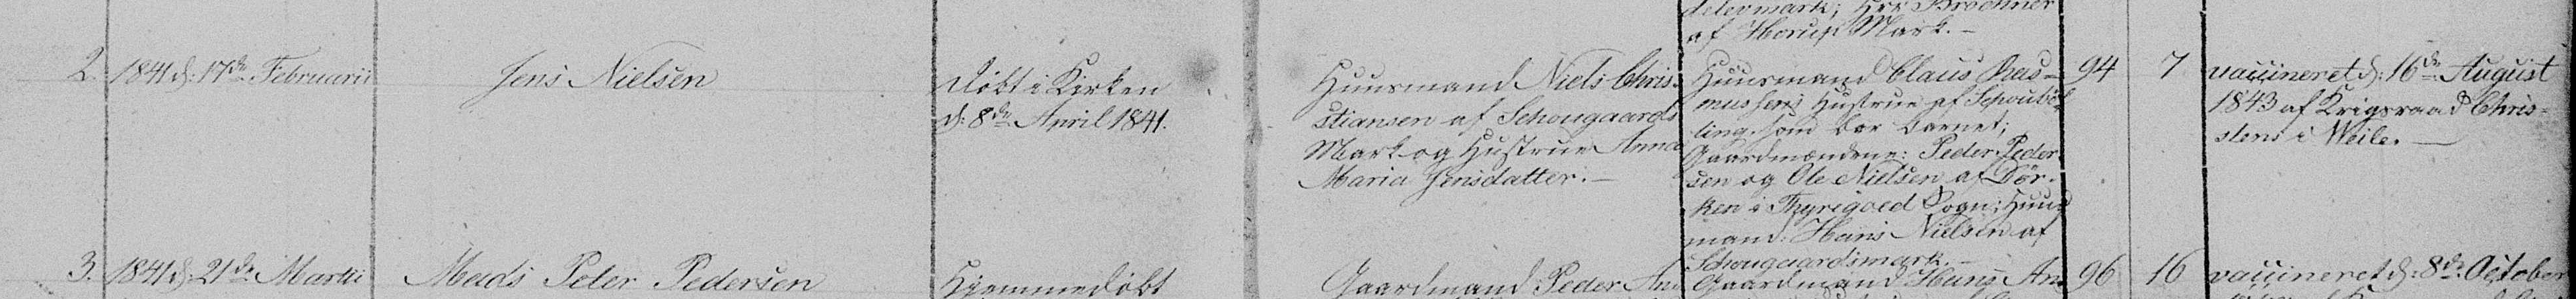 delevmark; Hrr Brochner
af Hörup Mark. –
2. 1841 d: 17de Februarii
Jens Nielsen
döbt i Kirken
d: 8de April 1841.
Huusmand Niels Chris-
stiansen af Schougaards
Mark og Hustrue Anna
Maria Jensdatter. –
Huusmand Claus Ras-
musens Hustrue af
ling, som bar Barnet;
Gaardmændene: Peder Peder-
sen og Ole Nielsen af Dör-
ken i Thyregoed Sogn; Huus-
mand Hans Nielsen af
Schougaardsmark. –
94
7
vaccineret d: 16de August
1843 af Krigsraad Chris-
stens i Weile. –
3. 1841 d: 21de Martii
Mads Peter Pedersen
Hjemmedöbt
Gaardmand Peder An
Gaardmand Hans An
96
16
vaccineret d: 8de October